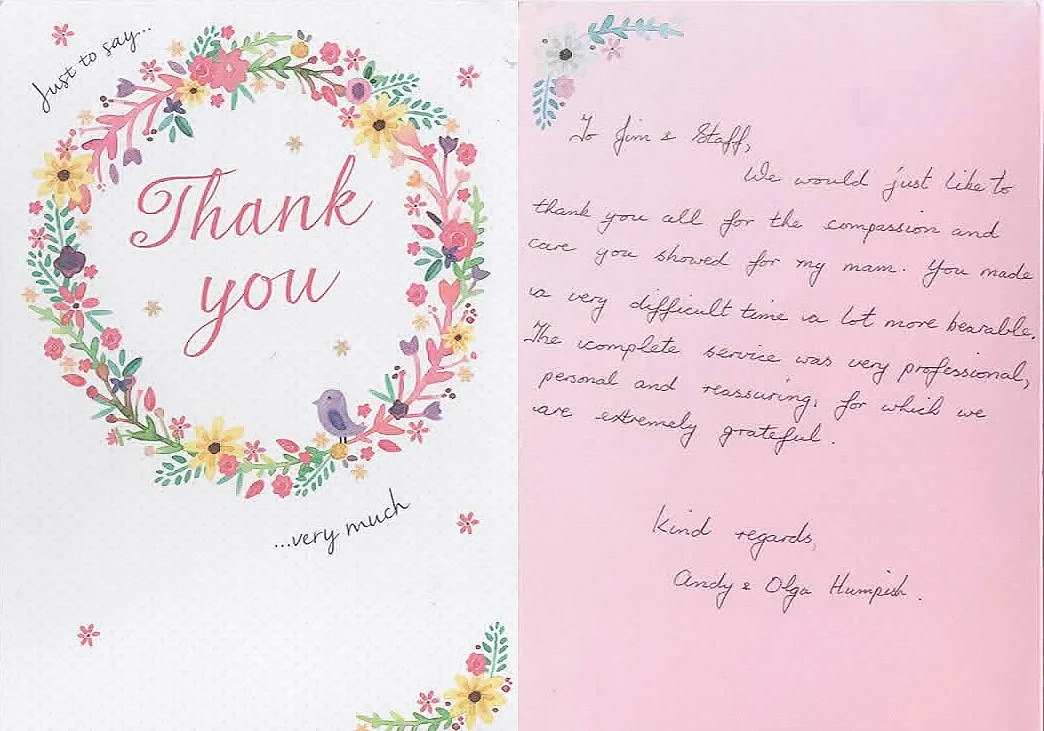 Just to say...
Thank
you
...very much
To Jim & Staff,
We would just like to
thank you all for the compassion and
care you showed for my mam. You made
a very difficult time a lot more bearable.
The complete service was very professional,
personal and reassuring, for which we
are extremely grateful.
Kind regards,
Andy & Olga Humpish.